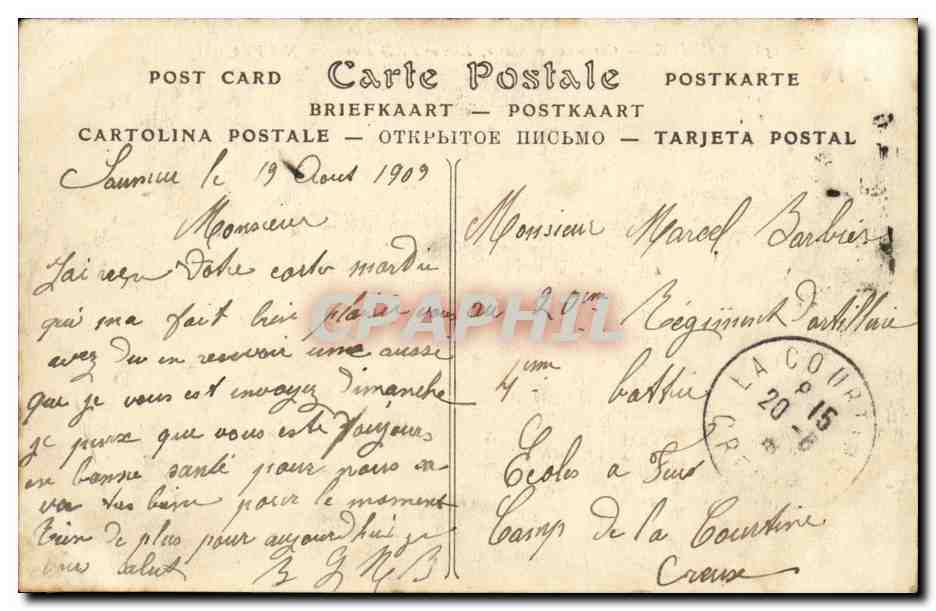 POST CARD Carte Postale POSTKARTE
BRIEFKAART — POSTKAART
CARTOLINA POSTALE — ОТКРЫТОЕ ПИСЬМО — TARJETA POSTAL
Saumur le 19 Aout 1909
Monsieur
J'ai reçu Votre carte mardie
qui ma fait bien plaisir vous
avez du en recevoir une ausse
que je vous est envoyez Dimanche
je pense que vous este Toujours
en bonne santé pour nous sa
va tres bien pour le moment
Rien de plus pour aujourdhui je
vous salut
B G N B
Monsieur Marcel Barbier
au 20em Régiment d'artillerie
4em battrie
Ecoles a Feux
Camp de la Courtine
Creuse
LA COURTINE
8 15
20 -8
CPAPHIL